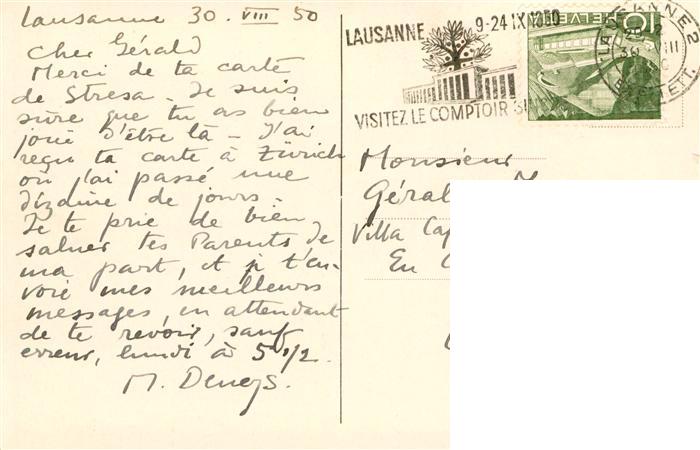 Lausanne 30. VIII 50
Cher Gérald
Merci de ta carte
de Stresa. Je suis
sûre que tu as bien
joui d'être là – J'ai
reçu ta carte à Zürich
où j'ai passé une
dizaine de jours.
Je te prie de bien
saluer tes Parents de
ma part, et je t'en-
voie mes meilleurs
messages, en attendant
de te revoir, sauf
erreur, lundi à 5 1/2.
M. Deneys.
LAUSANNE 9-24 IX 1950
VISITEZ LE COMPTOIR
HELVETIA
10
LAUSANNE 2
Monsieur
Géral
Villa Cap
En